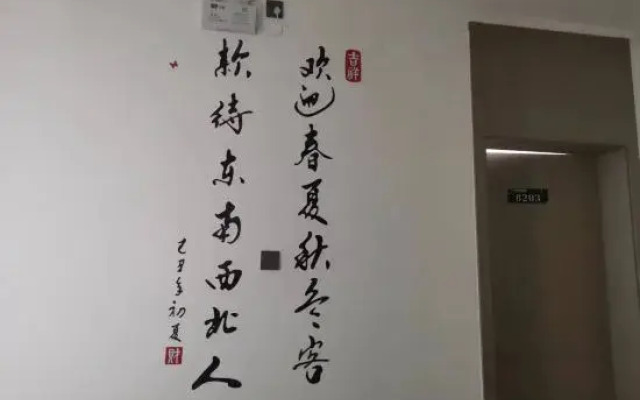 吉祥
欢迎春夏秋冬客
款待东南西北人
己丑年初夏
财
8203